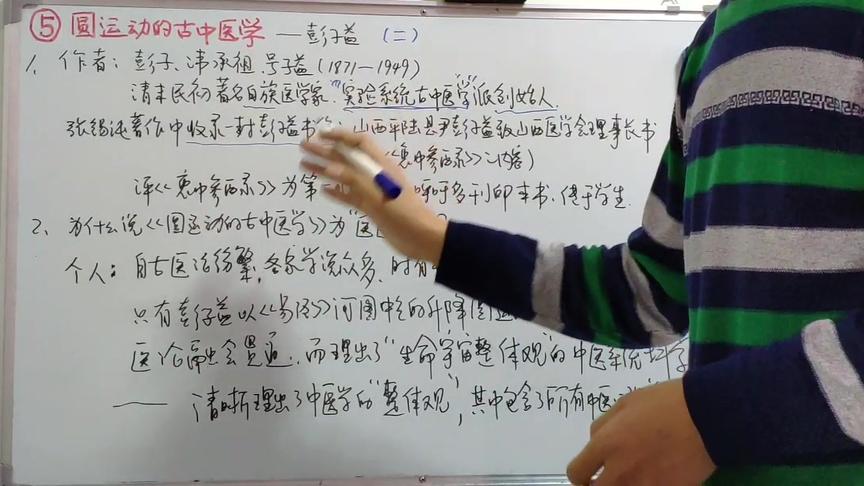 ⑤ 圆运动的古中医学 —彭子益 (二)
1、作者：彭子、讳承祖 号子益 (1871—1949)
清末民初著名白族医学家."实验系统古中医学"派创始人.
张锡纯著作中收录一封彭子益书 山西平陆县尹彭子益致山西医学会理事长书
《衷中参西录》之内容)
评《衷中参西录》为第 呼吁多刊印本书、便于学生.
2、为什么说《圆运动的古中医学》为"医
个人：自古医论纷繁,各家学说众多、时有
只有彭子益以《易经》河图中气的升降圆运
医论融会贯通..而理出了"生命宇宙整体观"的中医系统
—— 清晰理出了中医学的"整体观",其中包含了所有中医